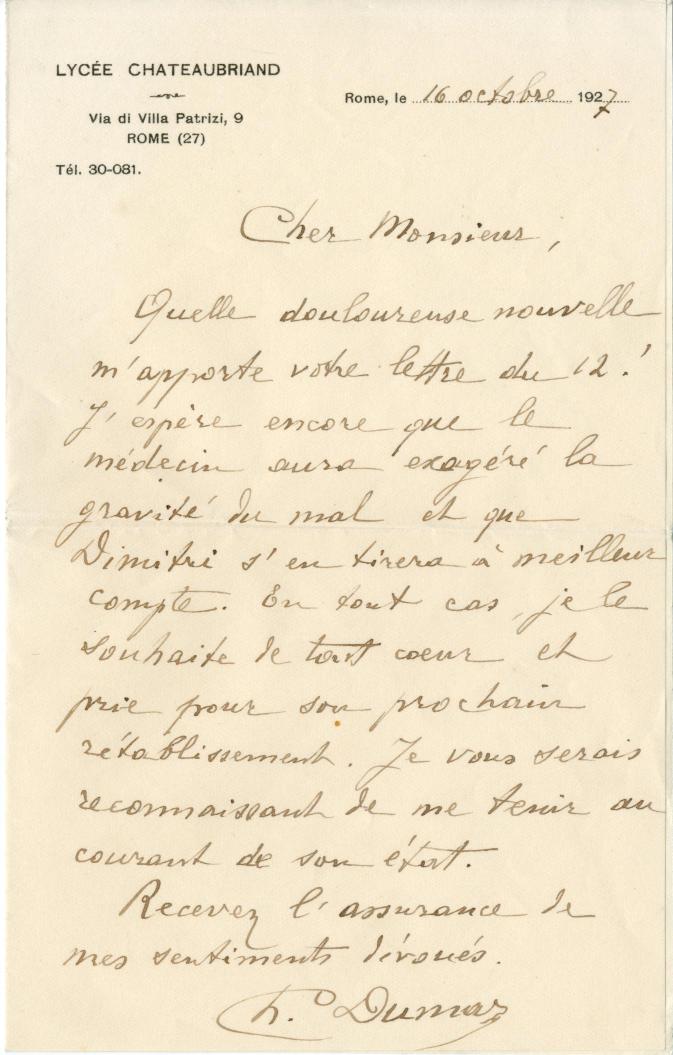 LYCÉE CHATEAUBRIAND
Via di Villa Patrizi, 9
ROME (27)
Tél. 30-081.
Rome, le 16 octobre 1927
Cher Monsieur,
Quelle douloureuse nouvelle
m'apporte votre lettre du 12 !
J'espère encore que le
médecin aura exagéré la
gravité du mal et que
Dimitri s'en tirera à meilleur
compte. En tout cas, je le
souhaite de tout coeur et
prie pour son prochain
rétablissement. Je vous serais
reconnaissant de me tenir au
courant de son état.
Recevez l'assurance de
mes sentiments dévoués.
Dumaz